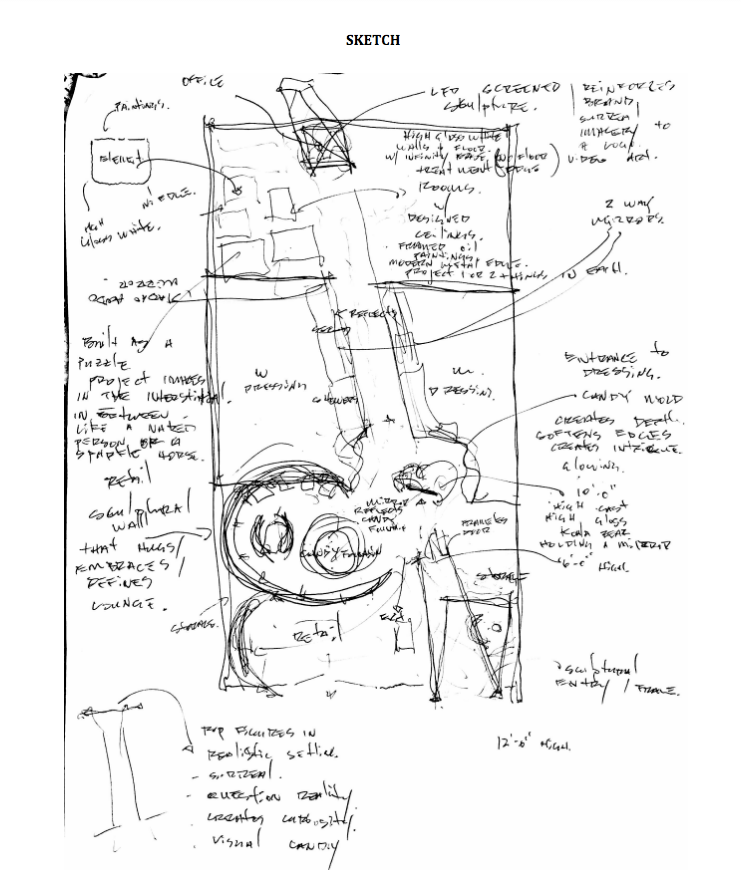 SKETCH
OFFICE
PAINTINGS.
ELEMENT
NO EDGE.
HIGH
GLOSS WHITE.
LED SCREENED
SCULPTURE.
REINFORCES
BRAND/
SURREAL
IMAGERY TO
A LOGO.
VIDEO ART.
HIGH GLOSS WHITE
WALLS & FLOOR
W/ INFINITY BASE (NO FLOOR EDGE)
TREATMENT
ROOMS
W/
DESIGNED
CEILINGS.
FRAMED OIL
PAINTINGS
MODERN METAL EDGE.
PROJECT 1 OR 2 THINGS IN EACH.
2 WAY
MIRRORS.
BUILT AS A
PUZZLE
PROJECT IMAGES
IN THE
IN BETWEEN.
LIKE A NAKED
PERSON OR A
HORSE.
REFLECTS
W
DRESSING
M.
DRESSING.
ENTRANCE TO
DRESSING.
CANDY MOLD
CREATES DEPTH.
SOFTENS EDGES
CREATES INTRIGUE.
GLOWING.
RETAIL
SCULPTURAL
WALL
THAT HUGS/
EMBRACES/
DEFINES
LOUNGE.
MIRROR
REFLECTS
CANDY
CANDY
10'-0"
HIGH CAST
HIGH GLOSS
BEAR
HOLDING A MIRROR
6'-0" HIGH.
STORAGE
RETAIL
SCULPTURAL
ENTRY / FRAME.
12'-0" HIGH.
POP FIGURES IN
REALISTIC SETTING.
- SURREAL.
- QUESTION REALITY
- CREATES CURIOSITY.
- VISUAL CANDY